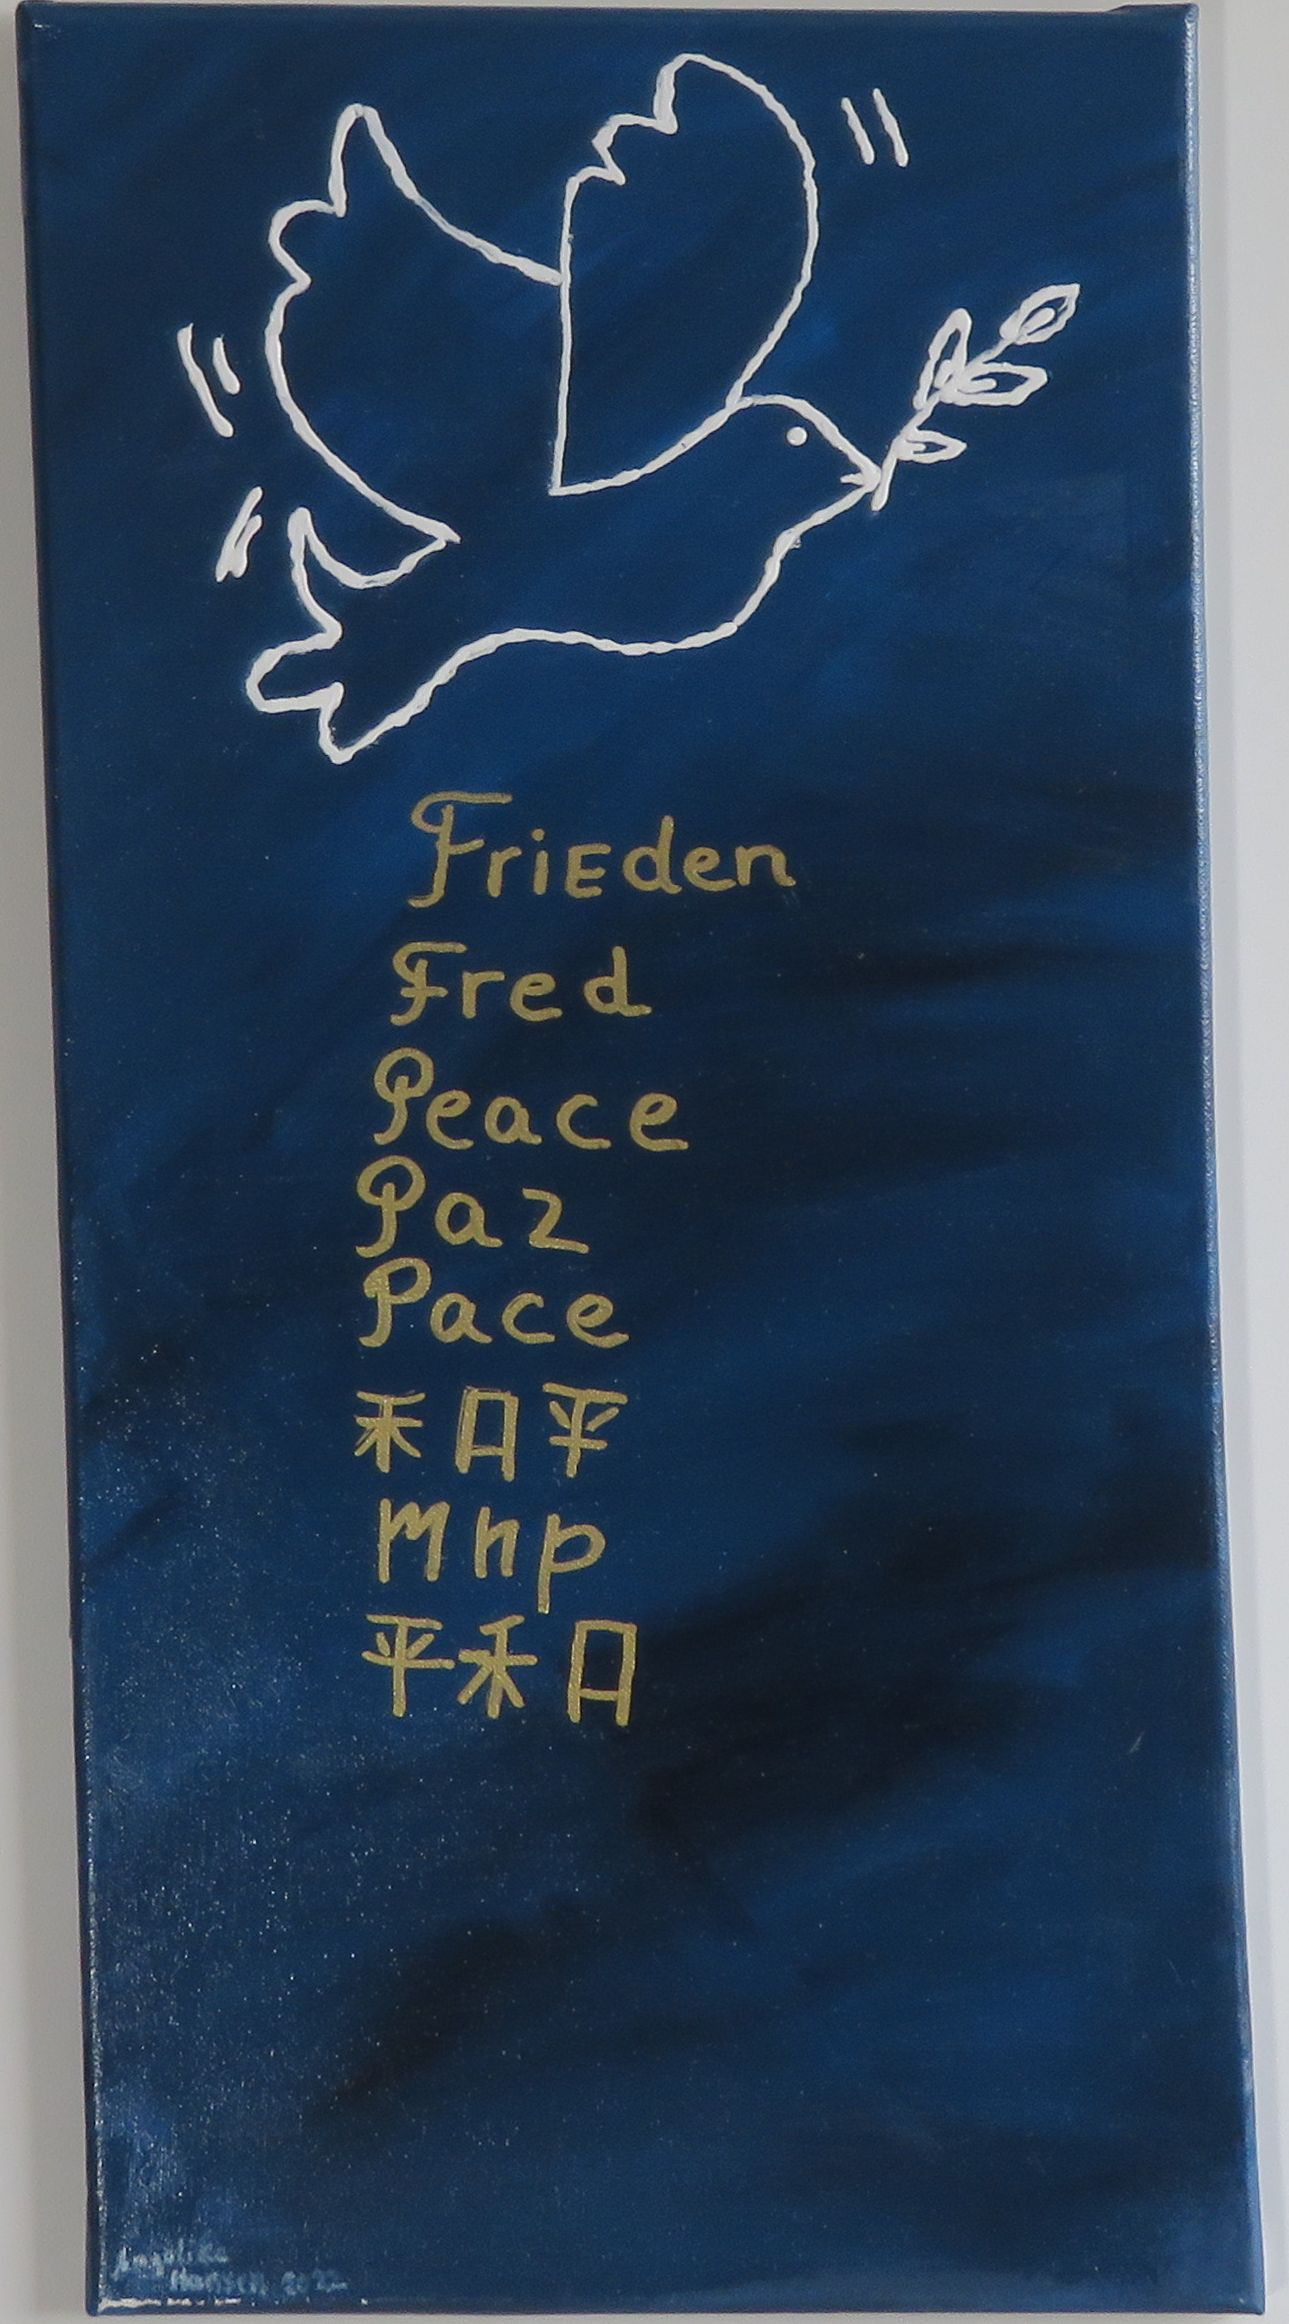 FriEden
Fred
Peace
Paz
Pace
和平
мнр
平和
Angelika
Hansen 2022